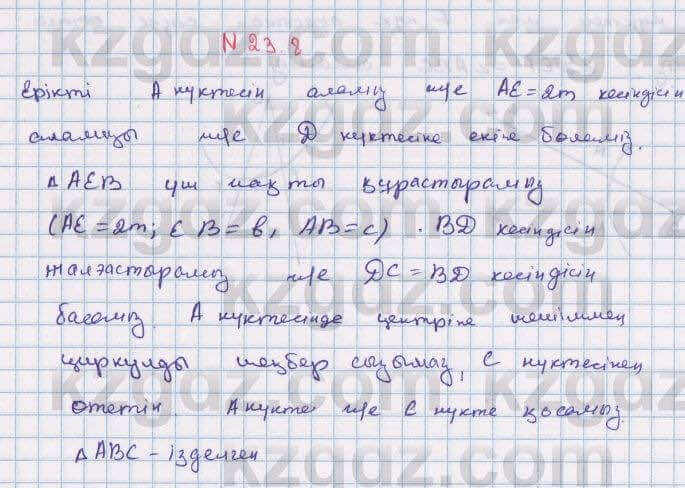 N 23.8
Ерікті А нүктесін аламыз ж/е АЕ = 2m кесіндісін
аламызы ж/е D нүктесіне екіге бөлеміз.
△ АЕВ үш жақты құрастырамыз
(АЕ = 2m; ЕВ = в, АВ = с). ВD кесіндісін
жалғастырамыз ж/е DC = BD кесіндісін
басамыз. А нүктесінде центріне
циркулды шеңбер сызымаз, С нүктесінен
өтетін. А нүкте ж/е С нүкте қосамыз.
△ АВС - ізделген
kzgdz.com